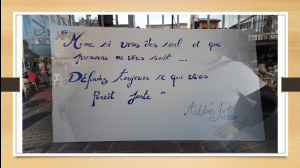 "Même si vous êtes seul et que
personne ne vous suit ...
Défendez toujours ce qui vous
Paraît juste "
Abbé Pierre